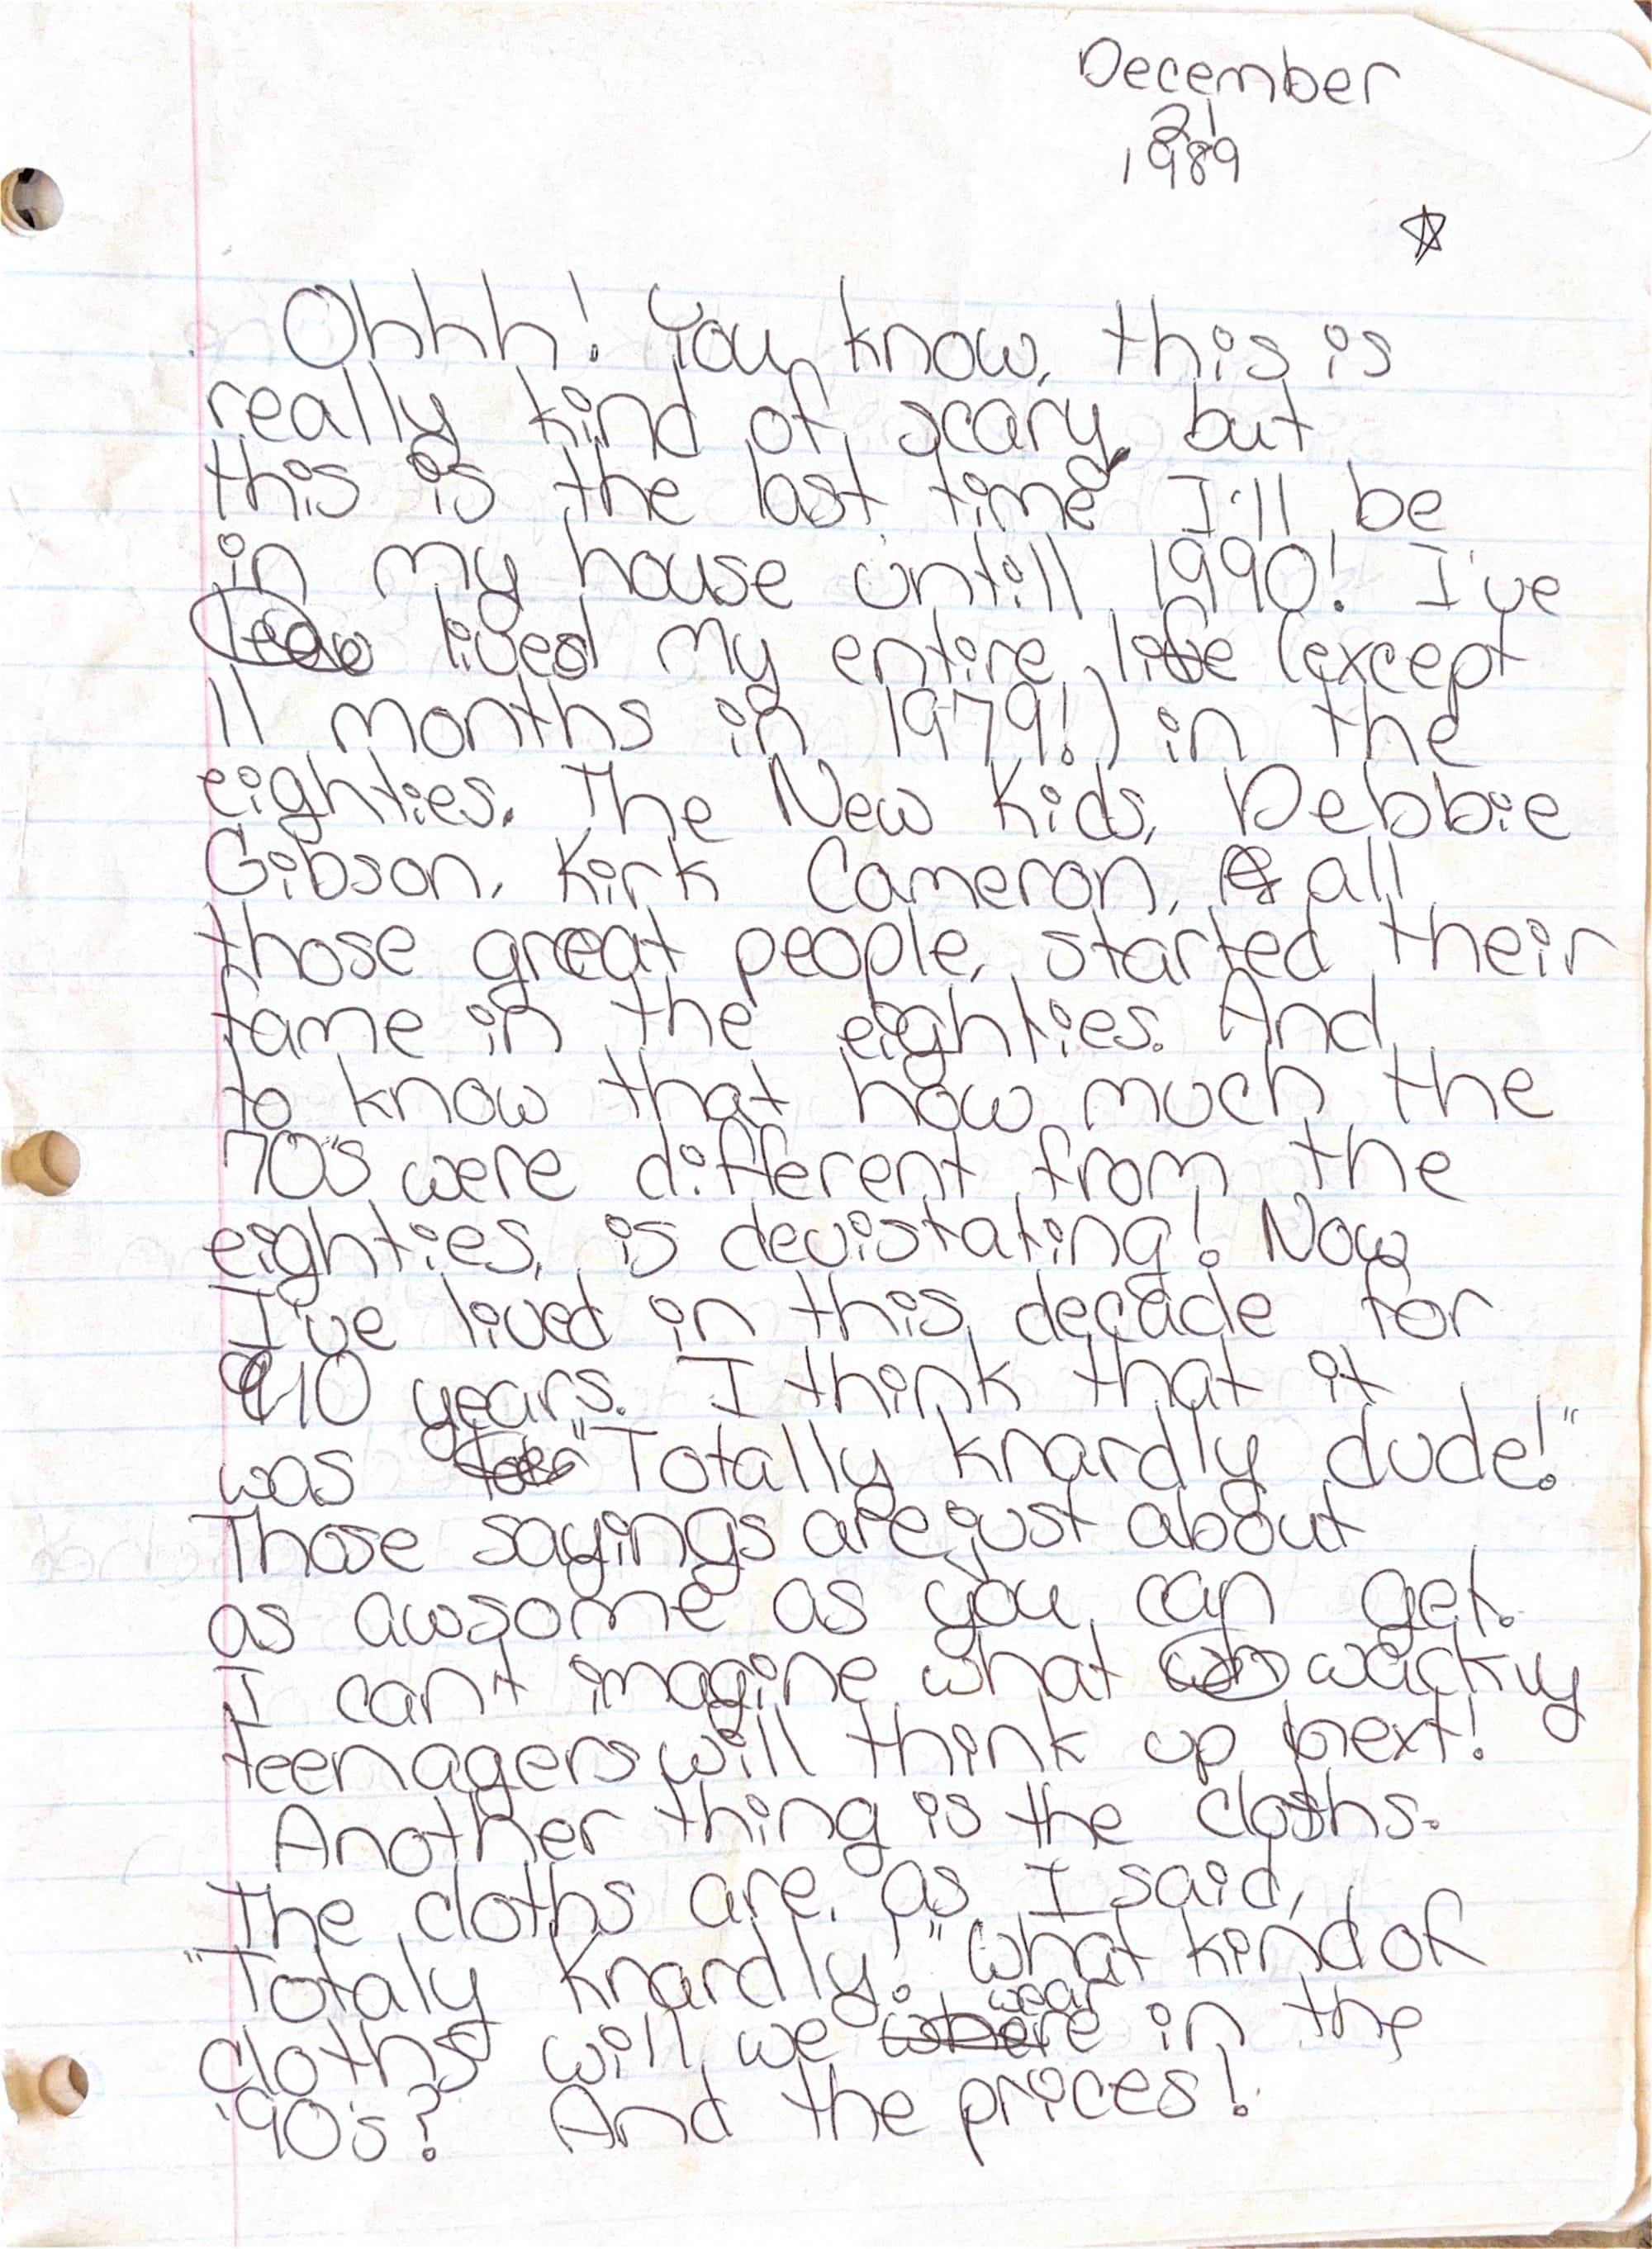 December
21
1989
Ohhh! You know, this is
really kind of scary, but
this is the last time I'll be
in my house untill 1990! I've
lived my entire life (except
11 months in 1979!) in the
eighties. The New Kids, Debbie
Gibson, Kirk Cameron, & all
those great people, started their
fame in the eighties. And
to know that how much the
70's were different from the
eighties, is devistating! Now
I've lived in this decade for
10 years. I think that it
was "Totally knardly dude!"
Those sayings are just about
as awsome as you can get.
I can't imagine what wacky
teenagers will think up next!
Another thing is the cloths.
The cloths are, as I said,
"Totaly Knardly!" What kind of
cloths will we wear in the
'90's? And the prices!